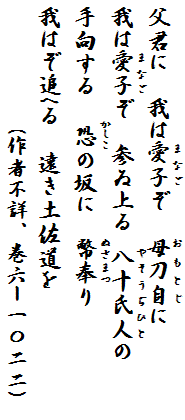 父君に　我は愛子ぞ　母刀自に
我は愛子ぞ　参ゐ上る　八十氏人の
手向する　恐の坂に　幣奉り
我はぞ追へる　遠き土佐道を
（作者不詳、巻六－一〇二二）
まなご
おもとじ
まなご
やそうぢひと
かしこ
ぬさまつ